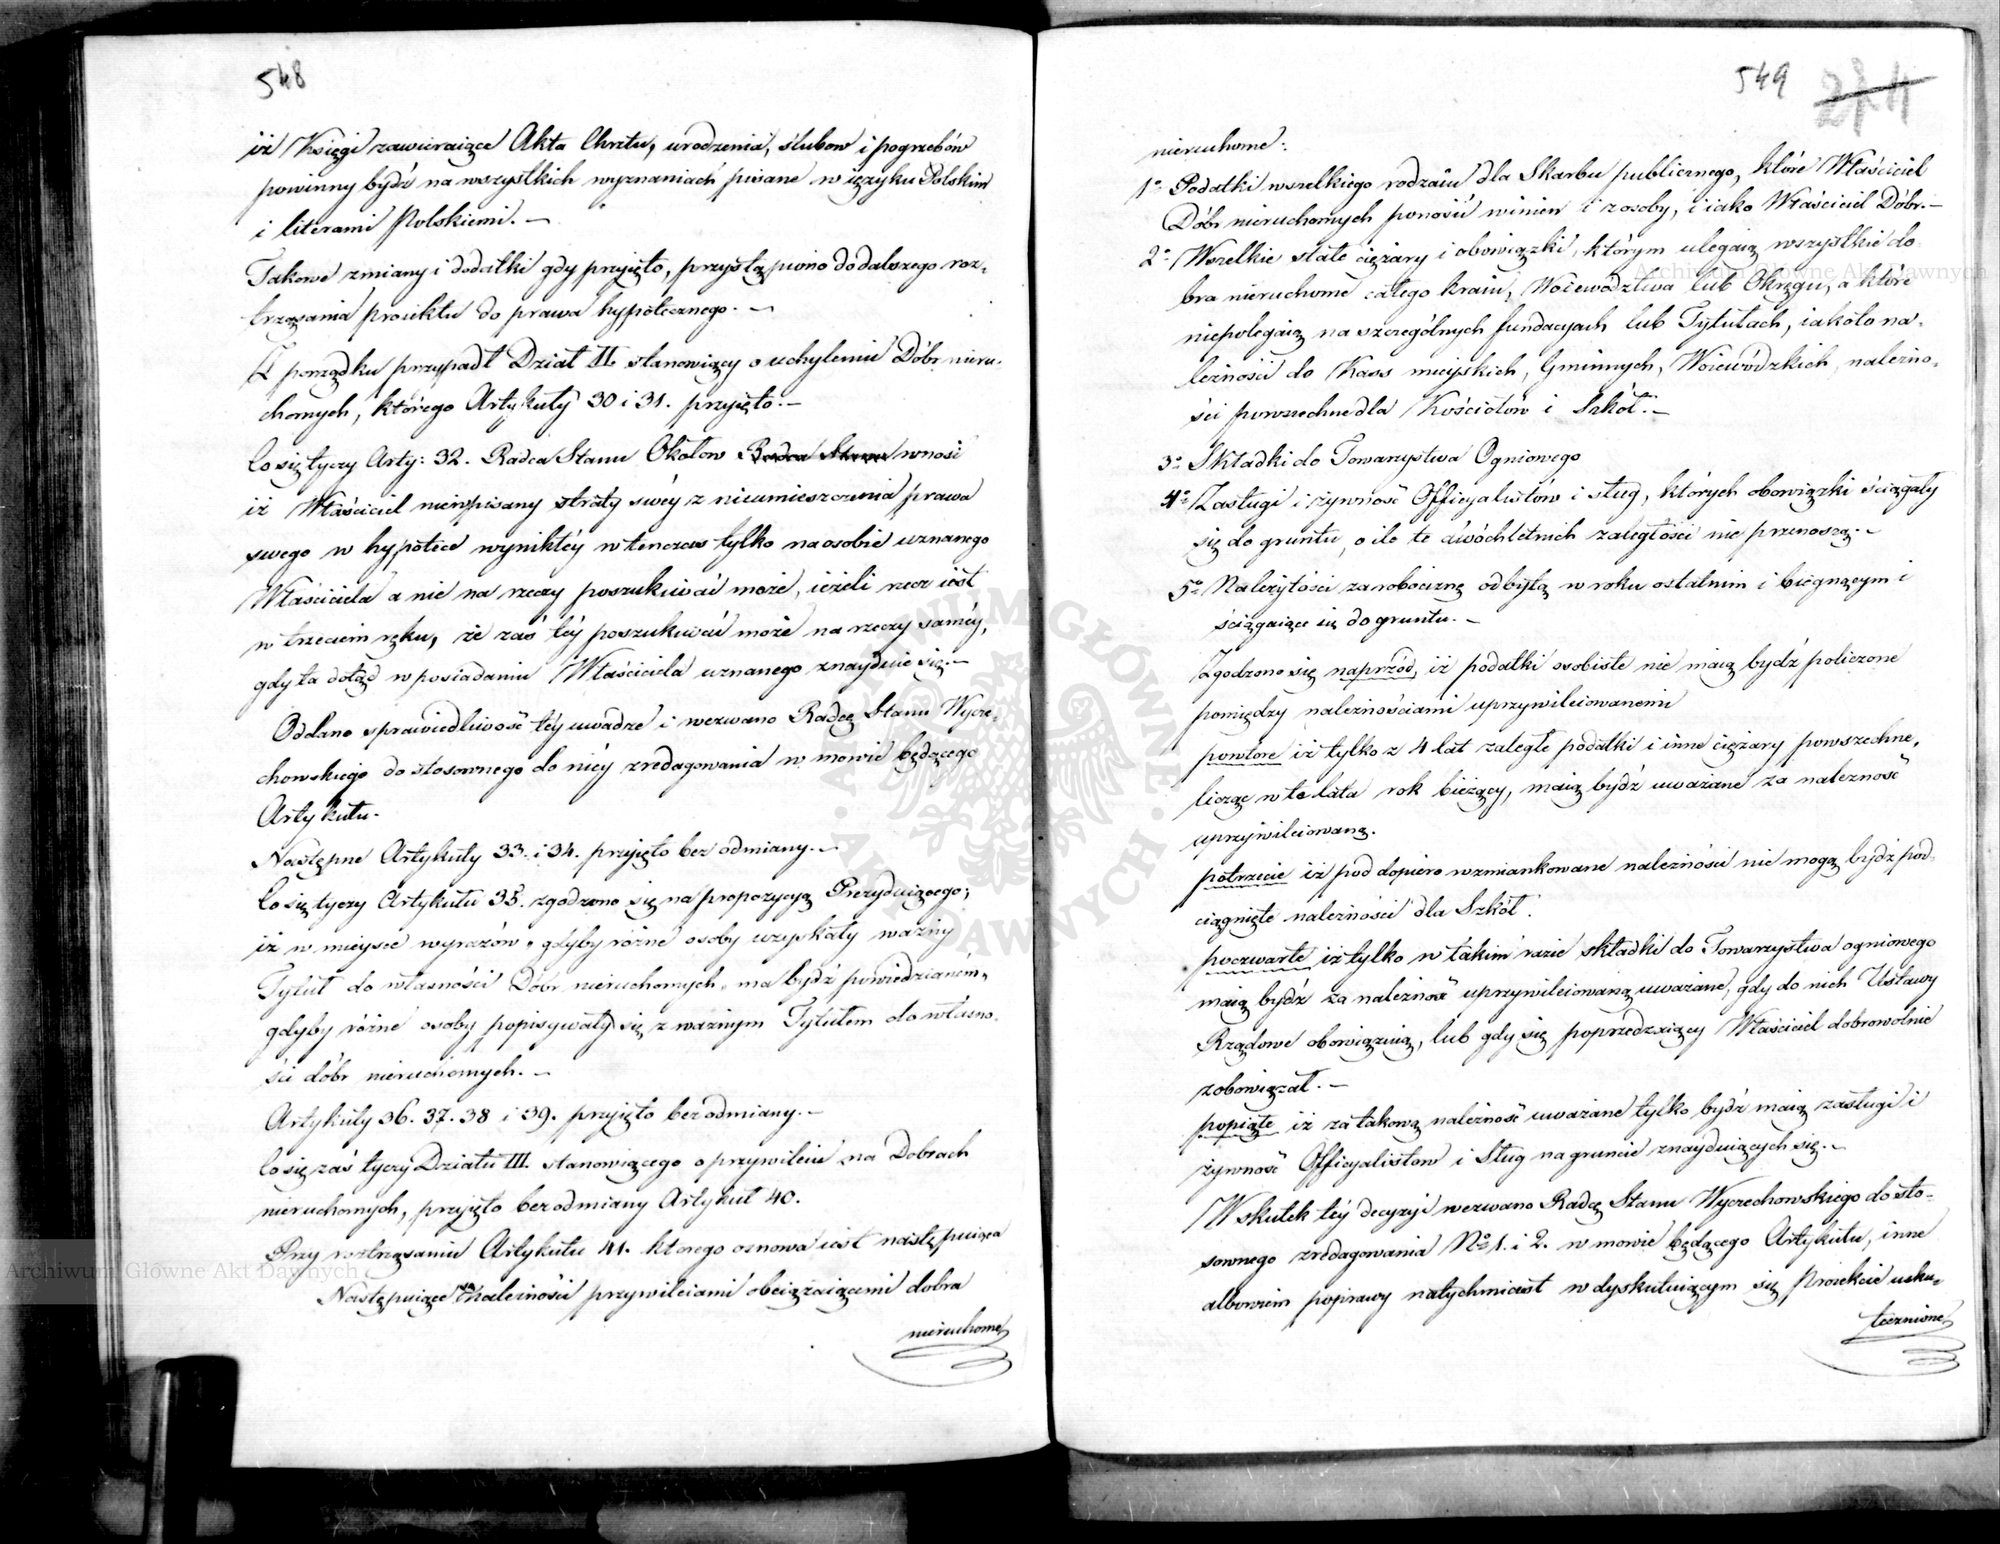 548
iż Księgi zawieraiące Akta Chrztu, urodzenia, ślubow i pogrzebów
powinny bydź na wszystkich wyznaniach pisane w ięzyku Polskim
i literami Polskiemi. —
Takowe zmiany i dodatki gdy przyięto, przystąpiono do dalszego roz-
trząsania proiektu do prawa hypotecznego. —
Z porządku przypadł Dział II. stanowiący o uchyleniu Dóbr nieru-
chomych, którego Artykuły 30 i 31. przyięto. —
Co się tyczy Arty: 32. Radca Stanu Okołow Radca Stanu wnosi
iż Właściciel niewpisany straty swéy z nieumieszczenia prawa
swego w hypotece wynikłéy w tenczas tylko na osobie uznanego
Właściciela a nie na rzeczy poszukiwać może, ieżeli rzecz iest
w trzeciem ręku, że zaś téy poszukiwać może na rzeczy saméy,
gdy ta dotąd w posiadaniu Właściciela uznanego znayduie się. —
Oddano sprawiedliwość téy uwadze i wezwano Radcę Stanu Wycze-
chowskiego do stosownego do niéy zredagowania w mowie będącego
Artykułu.
Następne Artykuły 33. i 34. przyięto bez odmiany. —
Co się tyczy Artykułu 35. zgodzono się na propozycyą Prezyduiącego,
iż w mieysce wyrazów „gdyby różne osoby uzyskały ważny
Tytuł do własności Dóbr nieruchomych„ ma bydź powiedzianém„
gdyby różne osoby popisywały się z ważnym Tytułem do własno-
ści dóbr nieruchomych. —
Artykuły 36. 37. 38 i 39. przyięto bez odmiany. —
Co się zaś tyczy Działu III. stanowiącego o przywileiu na Dobrach
nieruchomych, przyięto bez odmiany Artykuł 40.
Przy roztrząsaniu Artykułu 41. którego osnowa iest następuiąca
Następuiące są należności przywileiami obciążaiącemi dobra
nieruchome
549
274
nieruchome:
1° Podatki wszelkiego rodzaiu dla Skarbu publicznego, które Właściciel
Dóbr nieruchomych ponosić winien i z osoby, i iako Właściciel Dóbr. —
2° Wszelkie stałe ciężary i obowiązki, którym ulegaią wszystkie do-
bra nieruchome całego kraiu, Woiewództwa lub Okręgu, a które
niepolegaią na szczególnych fundacyach lub Tytułach, iakoto na-
leżności do Kass mieyskich, Gminnych, Woiewódzkich, należno-
ści powszechne dla Kościołów i Szkół. —
3° Składki do Towarzystwa Ogniowego
4° Zasługi i żywność Officyalistów i sług, których obowiązki ściągały
się do gruntu, o ile te dwóchletnich zaległości nie przenoszą. —
5° Należytości za robociznę odbytą w roku ostatnim i biegnącym i
ściągaiące się do gruntu. —
Zgodzono się naprzód, iż podatki osobiste nie maią bydź policzone
pomiędzy należnościami uprzywileiowanemi
powtore iż tylko z 4 lat zaległe podatki i inne ciężary powszechne,
licząc w te lata rok bieżący, maią bydź uważane za należność
uprzywileiowaną.
potrzecie iż pod dopiero wzmiankowane należności nie mogą bydź pod-
ciągnięte należności dla Szkół.
poczwarte iż tylko w takim razie składki do Towarzystwa ogniowego
maią bydź za należność uprzywileiowaną uważane, gdy do nich Ustawy
Rządowe obowiązuią, lub gdy się poprzedzaiący Właściciel dobrowolnie
zobowiązał. —
popiąte iż za takową należność uważane tylko bydź maią zasługi i
żywność Officyalistow i Sług na gruncie znayduiących się. —
W skutek téy decyzyi wezwano Radcę Stanu Wyczechowskiego do sto-
sownego zredagowania No 1. i 2. w mowie będącego Artykułu, inne
albowiem poprawy natychmiast w dyskutuiącym się Proiekcie usku-
teczniono
Archiwum Główne Akt Dawnych
Archiwum Główne Akt Dawnych
ARCHIWUM GŁÓWNE AKT DAWNYCH